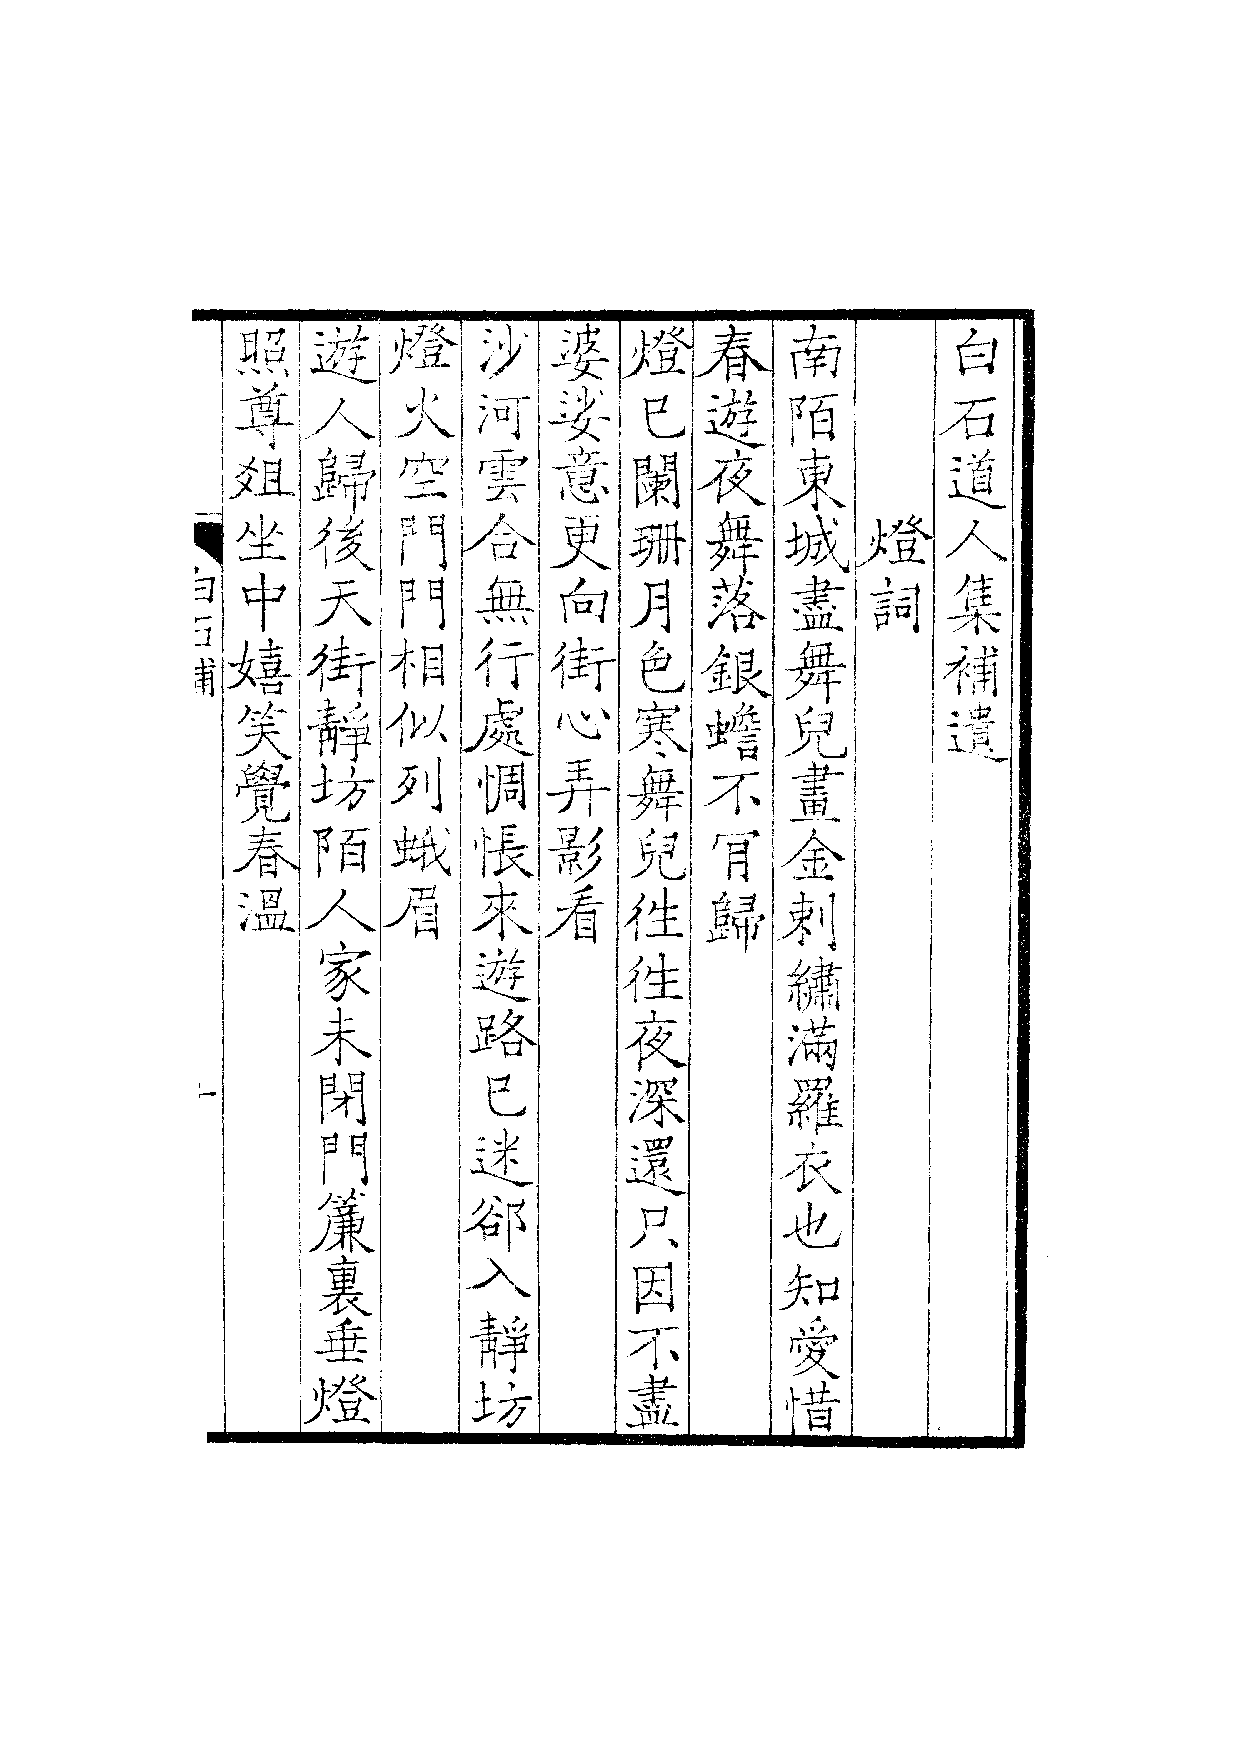 白石道人集補遺
燈詞
南陌東城盡舞兒畫金刺繡滿羅衣也知愛惜
春遊夜舞落銀蟾不肎歸
燈已闌珊月色寒舞兒徃徃夜深還只因不盡
婆娑意更向街心弄影看
沙河雲合無行處惆悵來遊路已迷卻入靜坊
燈火空門門相似列蛾眉
遊人歸後天街靜坊陌人家未閉門簾裏垂燈
照尊俎坐中嬉笑覺春溫
白石補
一